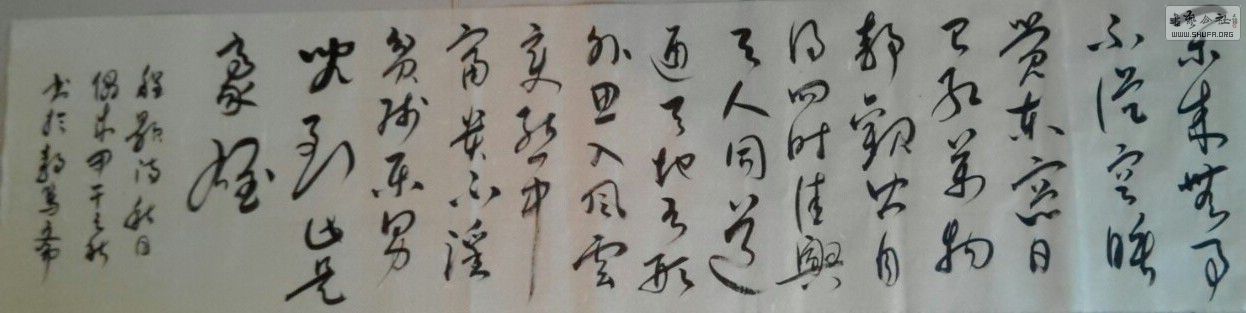 閒来無事
不從容睡
覺東窗日
已紅萬物
靜觀皆自
得四时佳興
与人同道
通天地有形
外思入风雲
变態中
富貴不淫
貧賤乐男
兒到此是
豪雄
程顥詩秋日
偶成甲午之秋
书於
书艺公社
WWW.SHUFA.ORG